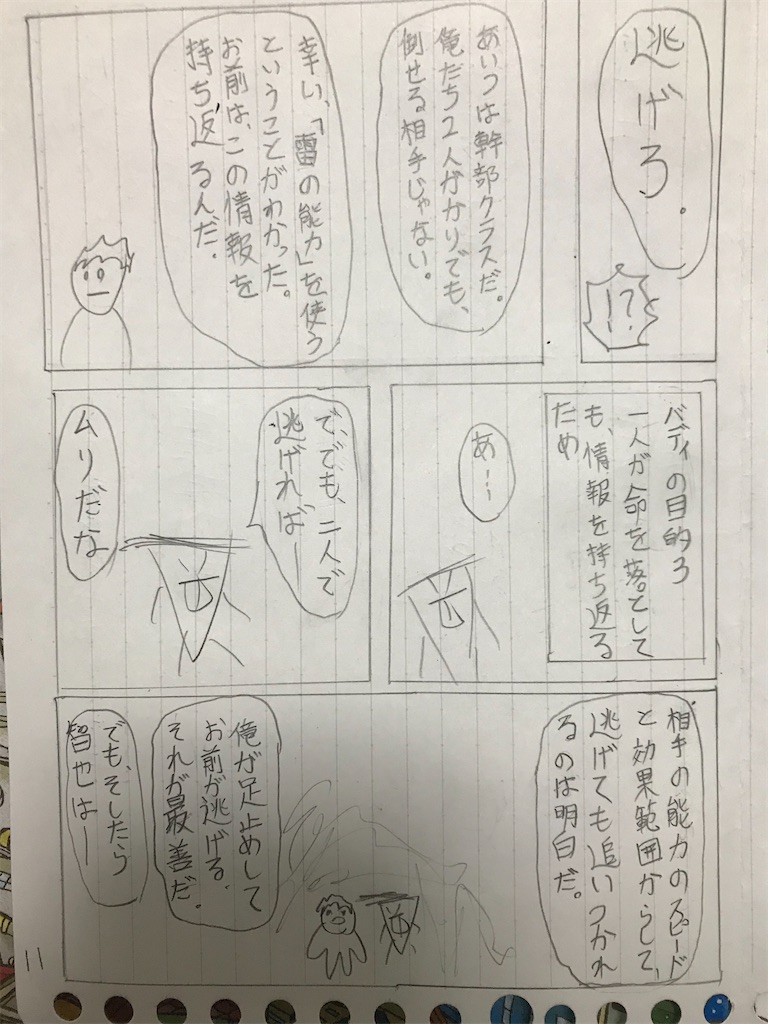 逃げろ。
!?
あいつは幹部クラスだ。
俺たち2人がかりでも、
倒せる相手じゃない。
幸い、「雷の能力」を使う
ということがわかった。
お前は、この情報を
持ち返るんだ。
バディの目的3
一人が命を落として
も、情報を持ち返る
ため
あ…
で、でも、二人で
逃げれば―
ムリだな
相手の能力のスピード
と効果範囲からして、
逃げても追いつかれ
るのは明白だ。
俺が足止めして
お前が逃げる。
それが最善だ。
でも、そしたら
智也は―
11